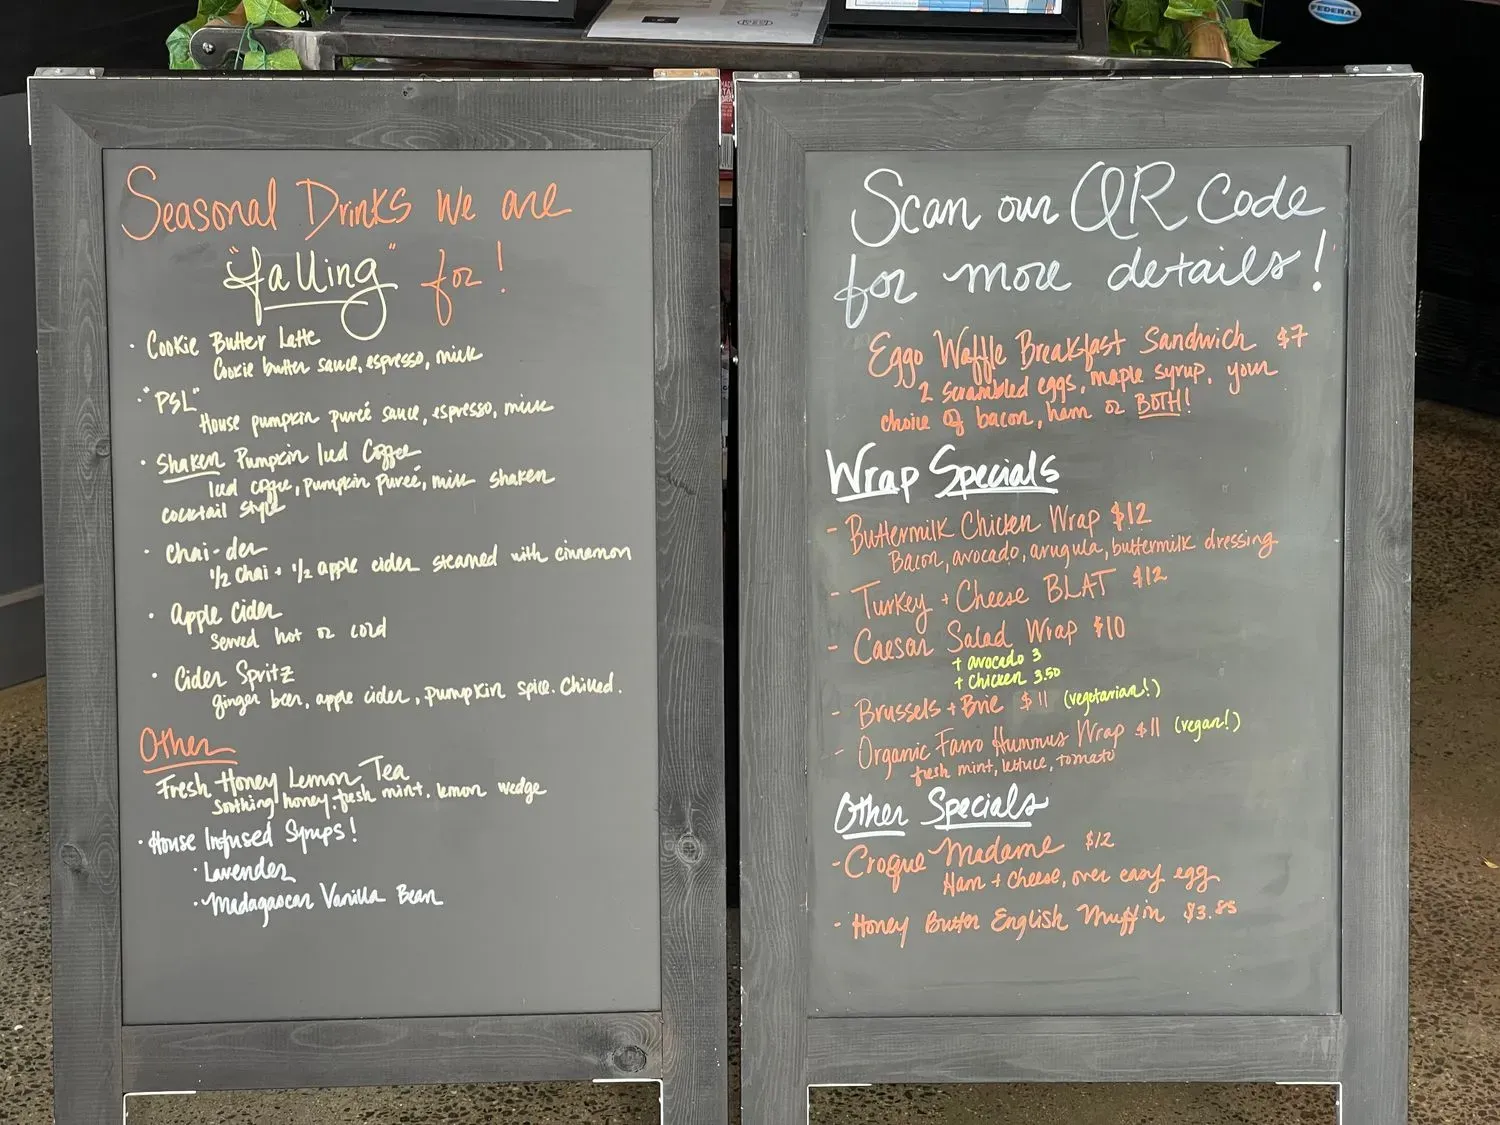 FEDERAL
Seasonal Drinks We are
"falling" for!
· Cookie Butter Latte
Cookie butter sauce, espresso, milk
· "PSL"
House pumpkin pureé sauce, espresso, milk
· Shaken Pumpkin Iced Coffee
Iced coffee, pumpkin pureé, milk shaken
cocktail style
· Chai-der
1/2 Chai + 1/2 apple cider steamed with cinnamon
· Apple Cider
Served hot or cold
· Cider Spritz
ginger beer, apple cider, pumpkin spice. Chilled.
Other
Fresh Honey Lemon Tea
Soothing honey, fresh mint, lemon wedge
· House Infused Syrups!
· Lavender
· Madagascar Vanilla Bean
Scan our QR Code
for more details!
Eggo Waffle Breakfast Sandwich $7
2 scrambled eggs, maple syrup, your
choice of bacon, ham or BOTH!
Wrap Specials
- Buttermilk Chicken Wrap $12
Bacon, avocado, arugula, buttermilk dressing
- Turkey + Cheese BLAT $12
- Caesar Salad Wrap $10
+ avocado 3
+ Chicken 3.50
- Brussels + Brie $11 (vegetarian!)
- Organic Farro Hummus Wrap $11 (vegan!)
fresh mint, lettuce, tomato
Other Specials
- Croque Madame $12
Ham + cheese, over easy egg
- Honey Butter English Muffin $3.85